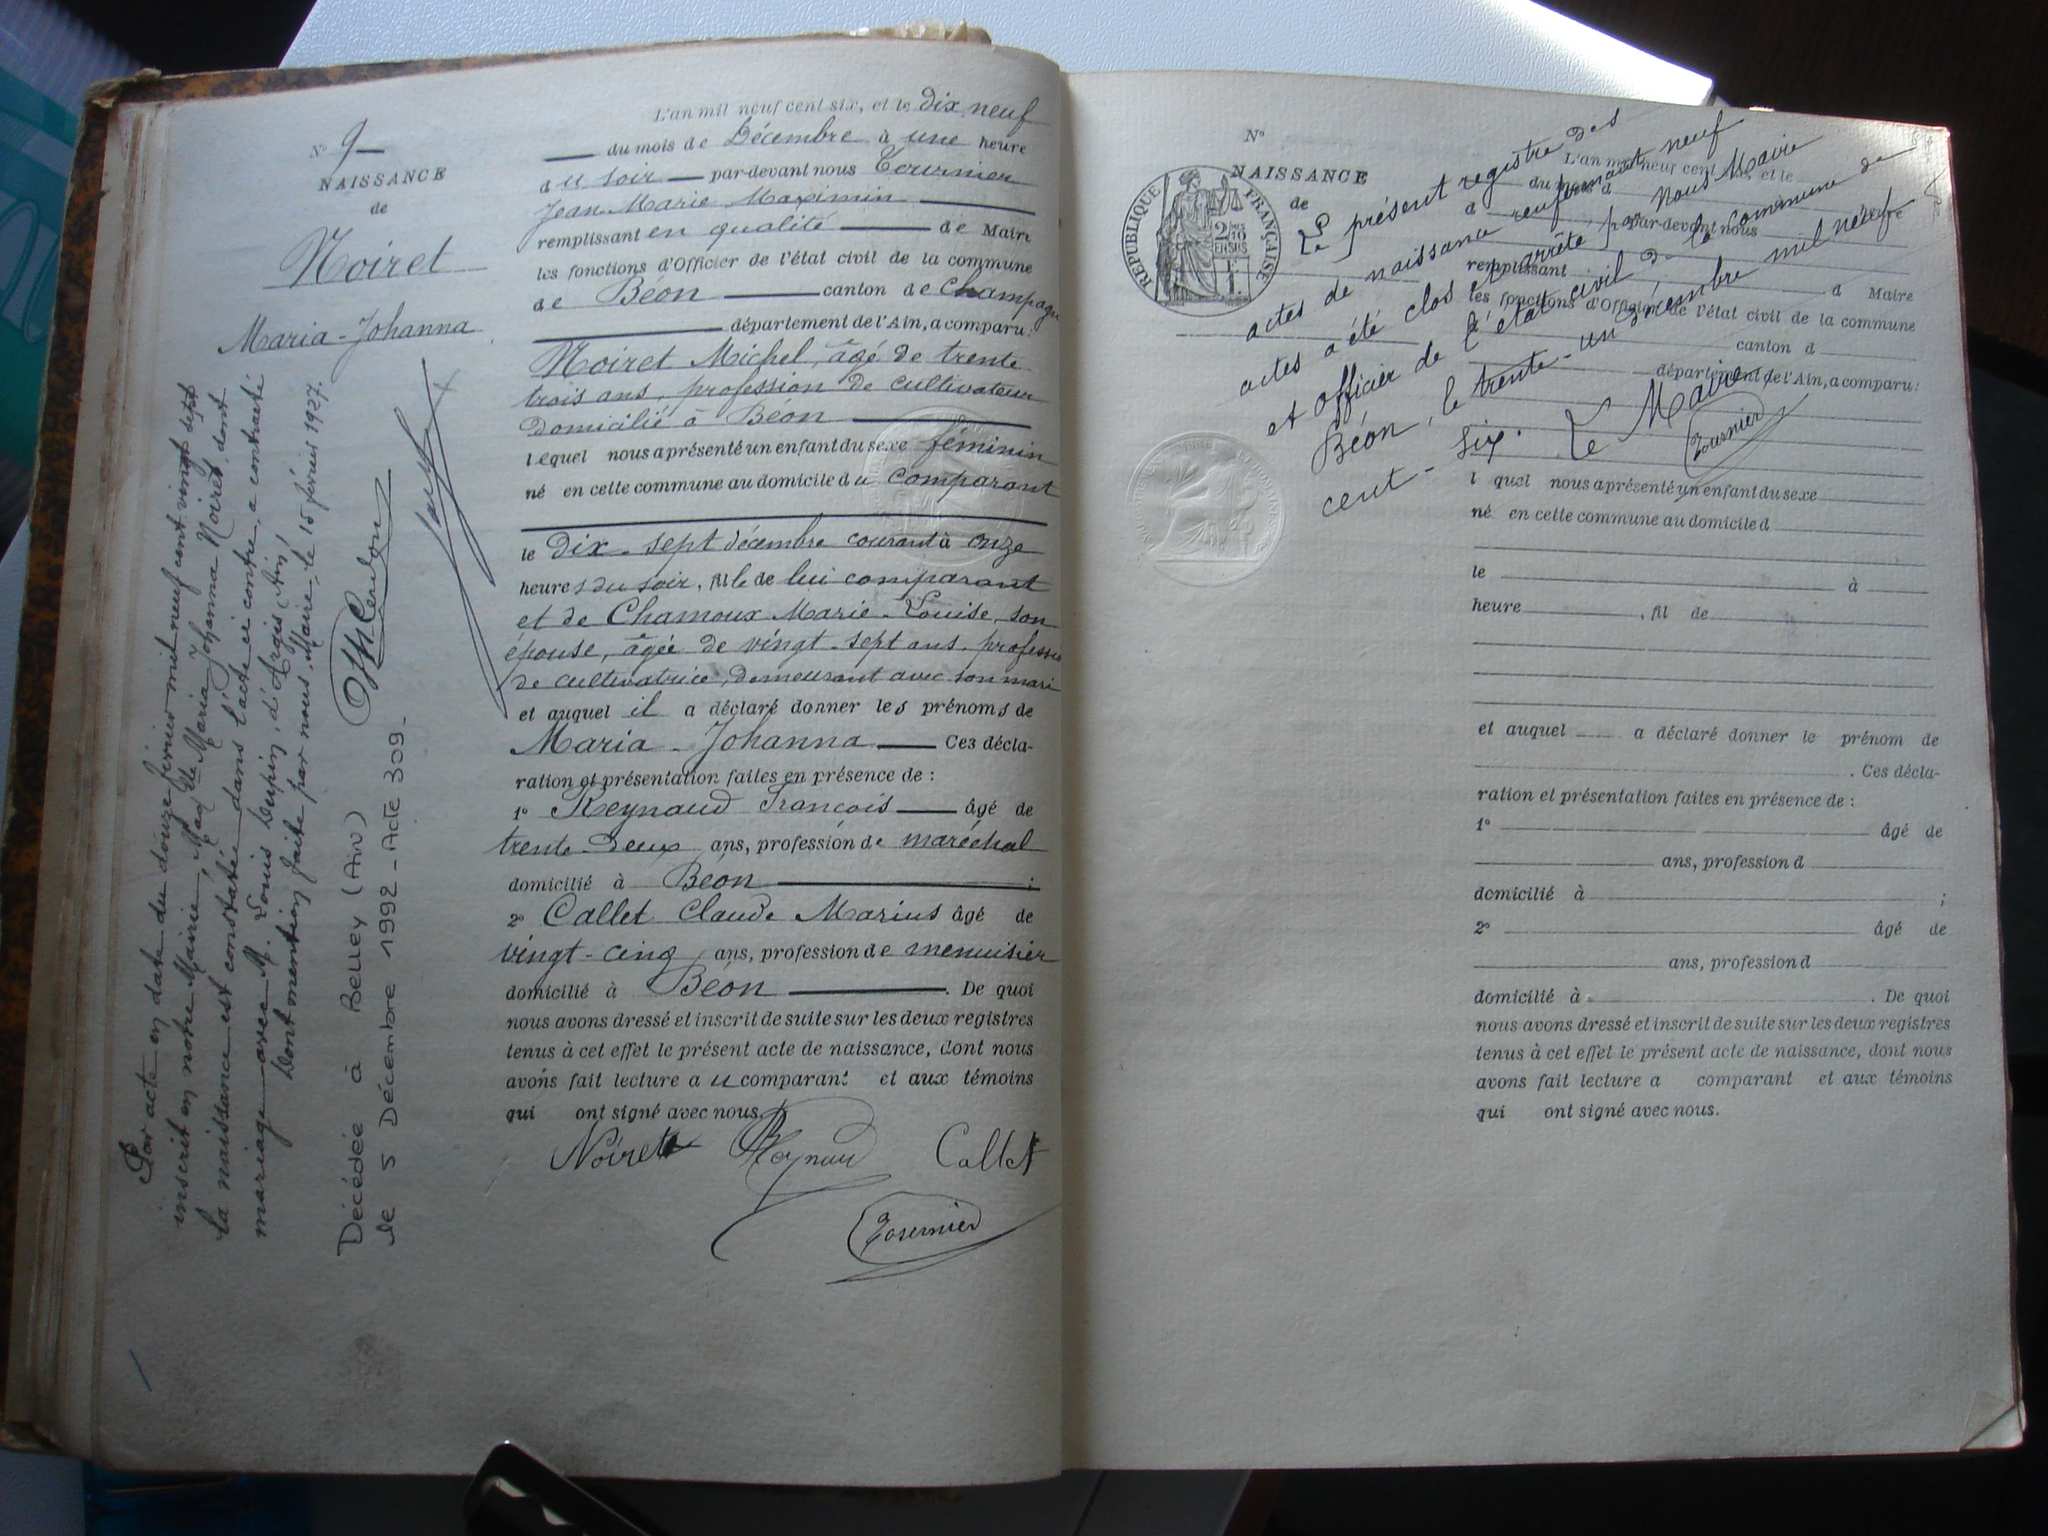 N° 9
NAISSANCE
de
Noiret
Maria-Johanna
L'an mil neuf cent six, et le dix neuf
du mois de Décembre à une heure
du soir par-devant nous Tournier
Jean Marie Maximin
remplissant en qualité de Maire
les fonctions d'Officier de l'état civil de la commune
de Béon canton de Champagne
département de l'Ain, a comparu:
Noiret Michel, âgé de trente
trois ans, profession de cultivateur
domicilié à Béon
lequel nous a présenté un enfant du sexe féminin
né en cette commune au domicile du comparant
le dix-sept décembre courant à onze
heures du soir, fille de lui comparant
et de Chamoux Marie-Louise, son
épouse, âgée de vingt-sept ans, profession
de cultivatrice, demeurant avec son mari
et auquel il a déclaré donner les prénoms de
Maria-Johanna Ces décla-
ration et présentation faites en présence de :
1° Reynaud François âgé de
trente-deux ans, profession de maréchal
domicilié à Béon ;
2° Callet Claude Marius âgé de
vingt-cinq ans, profession de menuisier
domicilié à Béon . De quoi
nous avons dressé et inscrit de suite sur les deux registres
tenus à cet effet le présent acte de naissance, dont nous
avons fait lecture au comparant et aux témoins
qui ont signé avec nous.
Noiret Reynaud Callet
Tournier
Par acte en date du douze février mil neuf cent vingt sept
inscrit en notre Mairie, Mad^lle Maria Johanna Noiret, dont
la naissance est constatée dans l'acte ci contre, a contracté
mariage avec M. Louis Dupin, d'Argis (Ain)
Dont mention faite par nous, Maire le 15 février 1927.
Décédée à BELLEY (AIN)
le 5 Décembre 1992 - Acte 309 -
N°
NAISSANCE
de
RÉPUBLIQUE FRANÇAISE
L'an mil neuf cent six, et le
du mois d à heure
d par-devant nous
remplissant d Maire
les fonctions d'Officier de l'état civil de la commune
canton d
département de l'Ain, a comparu:
Le présent registre des
actes de naissance renfermant neuf
actes a été clos et arrêté par Nous Maire
et officier de l'état civil de la commune de
Béon, le trente-un décembre mil neuf
cent-six. Le Maire,
Tournier
l quel nous a présenté un enfant du sexe
né en cette commune au domicile d
le à
heure , fil de
et auquel a déclaré donner le prénom de
. Ces décla-
ration et présentation faites en présence de :
1° âgé de
ans, profession d
domicilié à ;
2° âgé de
ans, profession d
domicilié à . De quoi
nous avons dressé et inscrit de suite sur les deux registres
tenus à cet effet le présent acte de naissance, dont nous
avons fait lecture a comparant et aux témoins
qui ont signé avec nous.